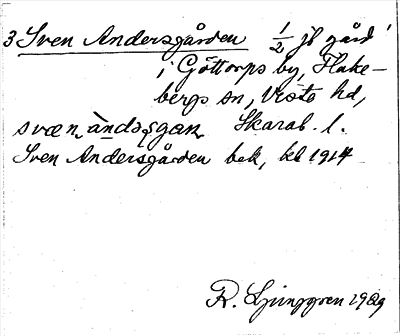 3 Sven Andersgården 1/2 jb gård
i Göttorps by, Flake-
bergs sn, Viste hd,
svæn àndəʂgan Skarab. l.
Sven Andersgården bek, kb 1914
R. Ljunggren 1929